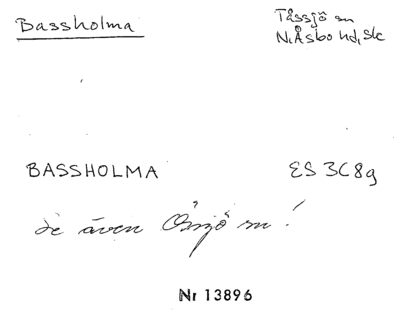 Bassholma
Tåssjö sn
N.Åsbo hd, sk
BASSHOLMA
ES 3C8g
Se även Össjö sn!
Nr 13896